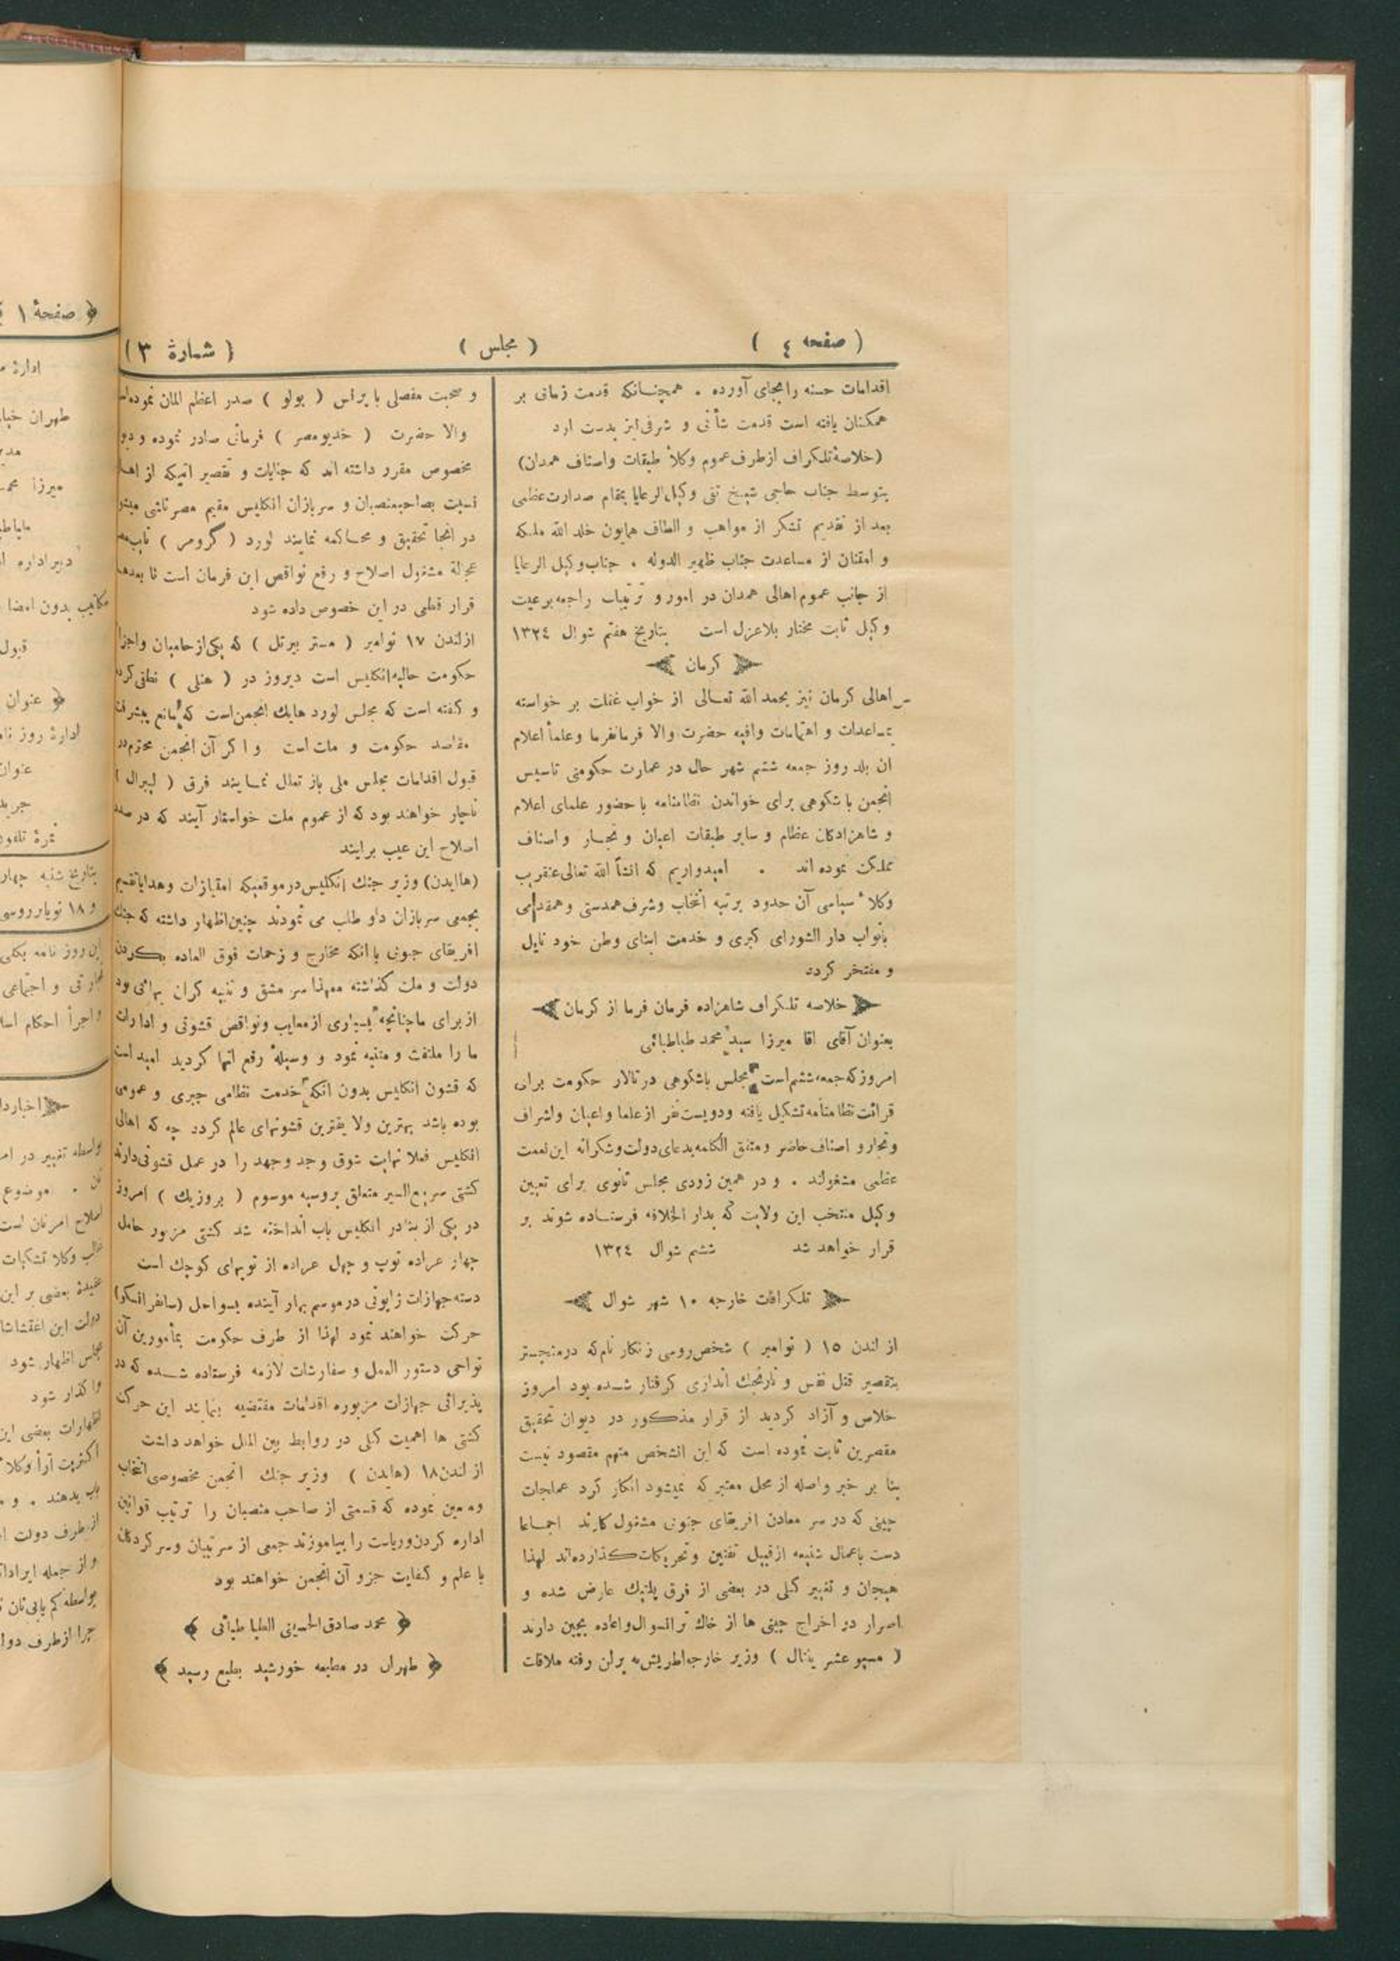 ( صفحه ٤ )
( مجلس )
( شمارهٔ ٣ )
اقدامات حسنه را بجای آورده . همچنانکه قدمت زمانی بر
همکنان یافته است قدمت شأنی و شرفی نیز بدست ارد
(خلاصهٔ تلکراف ازطرف عموم وکلأ طبقات واصناف همدان)
بتوسط جناب حاجی شیخ تقی وکیل الرعایا بمقام صدارت عظمی
بعد از تقدیم تشکر از مواهب و الطاف همایون خلد الله ملکه
و امتنان از مساعدت جناب ظهیر الدوله . جناب وکیل الرعایا
از جانب عموم اهالی همدان در امور و ترتیبات راجعه برعیت
وکیل ثابت مختار بلاعزل است بتاریخ هفتم شوال ١٣٢٤
کرمان
اهالی کرمان نیز بحمد الله تعالی از خواب غفلت بر خواسته
بمساعدات و اهتمامات وافیه حضرت والا فرمانفرما وعلمأ اعلام
ان بلد روز جمعه ششم شهر حال در عمارت حکومتی تاسیس
انجمن با شکوهی برای خواندن نظامنامه با حضور علمای اعلام
و شاهزادکان عظام و سایر طبقات اعیان و تجار و اصناف
مملکت نموده اند . امیدواریم که انشأ الله تعالی عنقریب
وکلاء سیاسی آن حدود برتبه انتخاب وشرف همدستی وهمقدمی
بانواب دار الشورای کبری و خدمت ابنای وطن خود نایل
و مفتخر کردد
خلاصه تلکراف شاهزاده فرمان فرما از کرمان
بعنوان آقای اقا میرزا سید محمد طباطبائی
امروز که جمعه ششم است مجلس باشکوهی در تالار حکومت برای
قرائت نظامنامه تشکیل یافته ودویست نفر از علما واعیان واشراف
وتجار و اصناف حاضر ومتفق الکلمه بدعای دولت وشکرانه این نعمت
عظمی مشغولند . و در همین زودی مجلس ثانوی برای تعیین
وکیل منتخب این ولایت که بدار الخلافه فرستاده شوند بر
قرار خواهد شد ششم شوال ١٣٢٤
تلکرافات خارجه ١٠ شهر شوال
از لندن ١٥ ( نوامبر ) شخص روسی زنکار نام که درمنچستر
بتقصیر قتل نفس و نارنجک اندازی کرفتار شده بود امروز
خلاص و آزاد کردید از قرار مذکور در دیوان تحقیق
مقصرین ثابت نموده است که این الشخص متهم مقصود نیست
بنا بر خبر واصله از محل معتبر که نمیشود انکار کرد عملجات
چینی که در سر معادن افریقای جنوبی مشغول کارند اجماعا
دست باعمال شنیعه ازقبیل تفتین وتحریکات کذارده اند لهذا
هیجان و تغییر کلی در بعضی از فرق پلتیک عارض شده و
اصرار در اخراج چینی ها از خاک ترانسوال واعاده بچین دارند
( مسیو عشر یانتال ) وزیر خارجه اطریش به برلن رفته ملاقات
و صحبت مفصلی با پرنس ( بولو ) صدر اعظم المان نموده اند
والا حضرت ( خدیو مصر ) فرمانی صادر نموده و
مخصوص مقرر داشته اند که جنایات و تقصیر اتیکه از
نسبت بصاحبمنصبان و سربازان انکلیس مقیم مصر ناشی میشود
در انجا تحقیق و محاکمه نمایند لورد ( گرومر )
عجالة مشغول اصلاح و رفع نواقص این فرمان است تا بعدها
قرار قطعی در این خصوص داده شود
ازلندن ١٧ نوامبر ( مستر بیرتل ) که یکی از حامیان واجزا
حکومت حالیه انکلیس است دیروز در ( هنلی ) نطقی کرده
و کفته است که مجلس لورد هایک انجمن است که مانع پیشرفت
مقاصد حکومت و ملت است و اکر آن انجمن محترم در
قبول اقدامات مجلس ملی باز تعلل نمایند فرق ( لیبرال )
ناچار خواهند بود که از عموم ملت خواستار آیند که در صدد
اصلاح این عیب برایند
(هاایدن) وزیر جنک انکلیس در موقعیکه امتیازات وهدایا تقدیم
بجمعی سربازان داو طلب می نمودند چنین اظهار داشته که جنک
افریقای جنوبی با انکه مخارج و زحمات فوق العاده بکردن
دولت و ملت کذاشته معهذا سر مشق و تنبیه کران بهائی بود
از برای ما چنانچه بسیاری از معایب ونواقص قشونی و ادارات
ما را ملتفت و متنبه نمود و وسیلهٔ رفع انها کردید امید است
که قشون انکلیس بدون انکه خدمت نظامی جبری و عمومی
بوده باشد بهترین ولا یقترین قشونهای عالم کردد چه که اهالی
انکلیس فعلا نهایت شوق وجد وجهد را در عمل قشونی دارند
کشتی سریع السیر متعلق بروسیه موسوم ( بروزیک ) امروز
در یکی از بنادر انکلیس باب انداخته شد کشتی مزبور حامل
چهار عراده توپ و چهل عراده از توپهای کوچک است
دسته جهازات ژاپونی در موسم بهار آینده بسواحل (سانفرانسکو)
حرکت خواهند نمود لهذا از طرف حکومت بمأمورین آن
نواحی دستور العمل و سفارشات لازمه فرستاده شده که در
پذیرائی جهازات مزبوره اقدامات مقتضیه بنمایند این حرکت
کشتی ها اهمیت کلی در روابط بین الملل خواهد داشت
از لندن ١٨ (هایدن ) وزیر جنک انجمن مخصوصی انتخاب
ومعین نموده که قسمتی از صاحب منصبان را ترتیب قوانین
اداره کردن وریاست را بیاموزند جمعی از سرتیپان وسرکردکان
با علم و کفایت جزو آن انجمن خواهند بود
محمد صادق الحسینی الطباطبائی
طهران در مطبعه خورشید بطبع رسید
صفحهٔ ١
طهران
میرزا
مکاتیب بدون امضا
قبول
عنوان
ادارهٔ روز
عنوان
نمرهٔ تلفون
این روز نامه
بواسطه تغییر در
موضوع
اصلاح امر نان است
مجلس اظهار شود
واکذار شود
اظهارات بعضی این
اکثریت آرأ وکلا
از طرف دولت
چرا از طرف